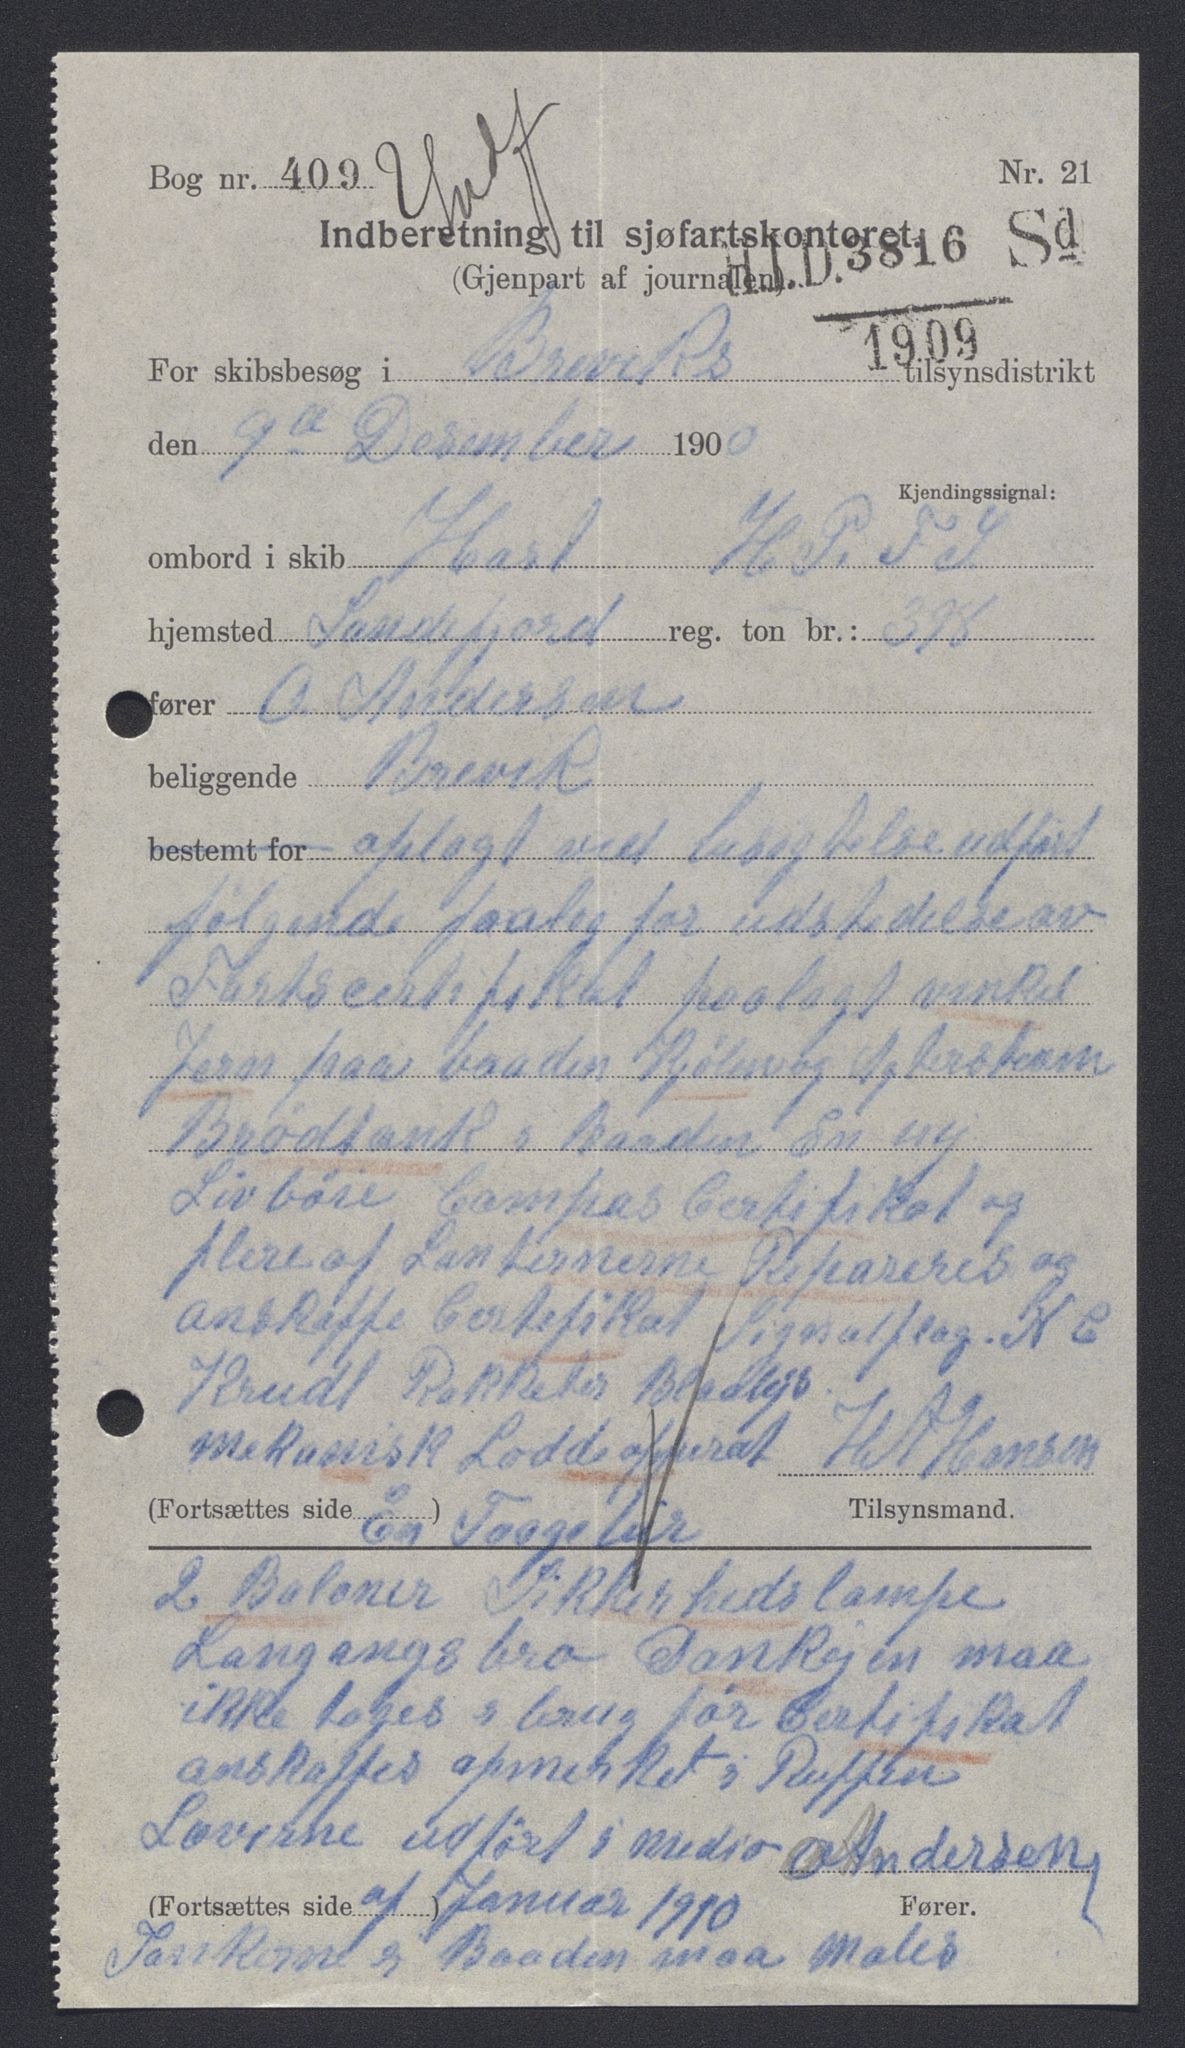 Bog nr. 409
Nr. 21
Indberetning til sjøfartskontoret.
(Gjenpart af journalen).
H.J.D. 3816 Sd
1909
For skibsbesøg i Breviks tilsynsdistrikt
den 9de Desember 190
Kjendingssignal:
ombord i skib H P. F S.
hjemsted Sandefjord reg. ton br.: 398
fører O. Andersen
beliggende Brevik
bestemt for oplagt ved besigtelse udført
følgende for udstedelse av
Fartscertifikat paalagt vinkel
Jern paa baaden Kjølen og Agterstevn
Brødtank i Baaden En ny
Livbøie Compas Certifikat og
flere af Lanternerne Repareres og
anskaffe Certefikat Signalflag. N C
Krudt Rakketer Blaalys.
mekanisk Loddeapparat H A Hansen
(Fortsættes side ) Tilsynsmand.
En Taagelur
2 Baloner Sikkerhedslampe
Langangsbro Donkijen maa
ikke tages i brug før Certifikat
anskaffes opmerket i Ruffen
Loverne udført i medio
O Andersen
(Fortsættes side ) Fører.
af Januar 1910
Tankerne i Baaden maa Males